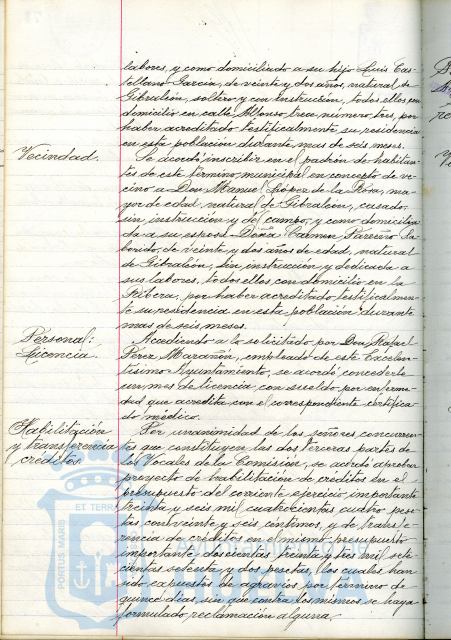 labores, y como domiciliado a su hijo Luis Cas-
tellano Garcia, de veinte y dos años, natural de
Gibraleón, soltero y con instrucción, todos ellos con
domicilio en calle Alfonso trece, número tres, por
haber acreditado testificalmente su residencia
en esta población durante mas de seis meses.
Vecindad.
Se acordó inscribir en el padrón de habitan-
tes de este término municipal en concepto de ve-
cino a Don Manuel López de la Rosa, ma-
yor de edad, natural de Gibraleón, casado,
sin instrucción y del campo, y como domicilia-
da a su esposa Doña Carmen Parreño Sa-
borido, de veinte y dos años de edad, natural
de Gibraleón, sin instrucción, y dedicada a
sus labores, todos ellos con domicilio en la
Ribera, por haber acreditado testificalmen-
te su residencia en esta población durante
mas de seis meses.
Personal:
Licencia.
Accediendo a lo solicitado por Don Rafael
Pérez Marañón, empleado de este Excelen-
tísimo Ayuntamiento, se acordó concederle
un mes de licencia, con sueldo, por enferme-
dad que acredita con el correspondiente certifica-
do médico.
Habilitación
y transferencia
créditos.
Por unanimidad de los señores concurren-
tes que constituyen las dos terceras partes de
los Vocales de la Comisión, se acordó aprobar
proyecto de habilitación de créditos en el
presupuesto del corriente ejercicio, importante
treinta y seis mil cuatrocientas cuatro pese-
tas con veinte y seis céntimos, y de transfe-
rencia de créditos en el mismo presupuesto
importante doscientas treinta y tres mil sete-
cientas setenta y dos pesetas, los cuales han
sido expuestos de agravios por término de
quince días, sin que contra los mismos se haya
formulado reclamación alguna.
PORTUS MARIS
ET TERRAE